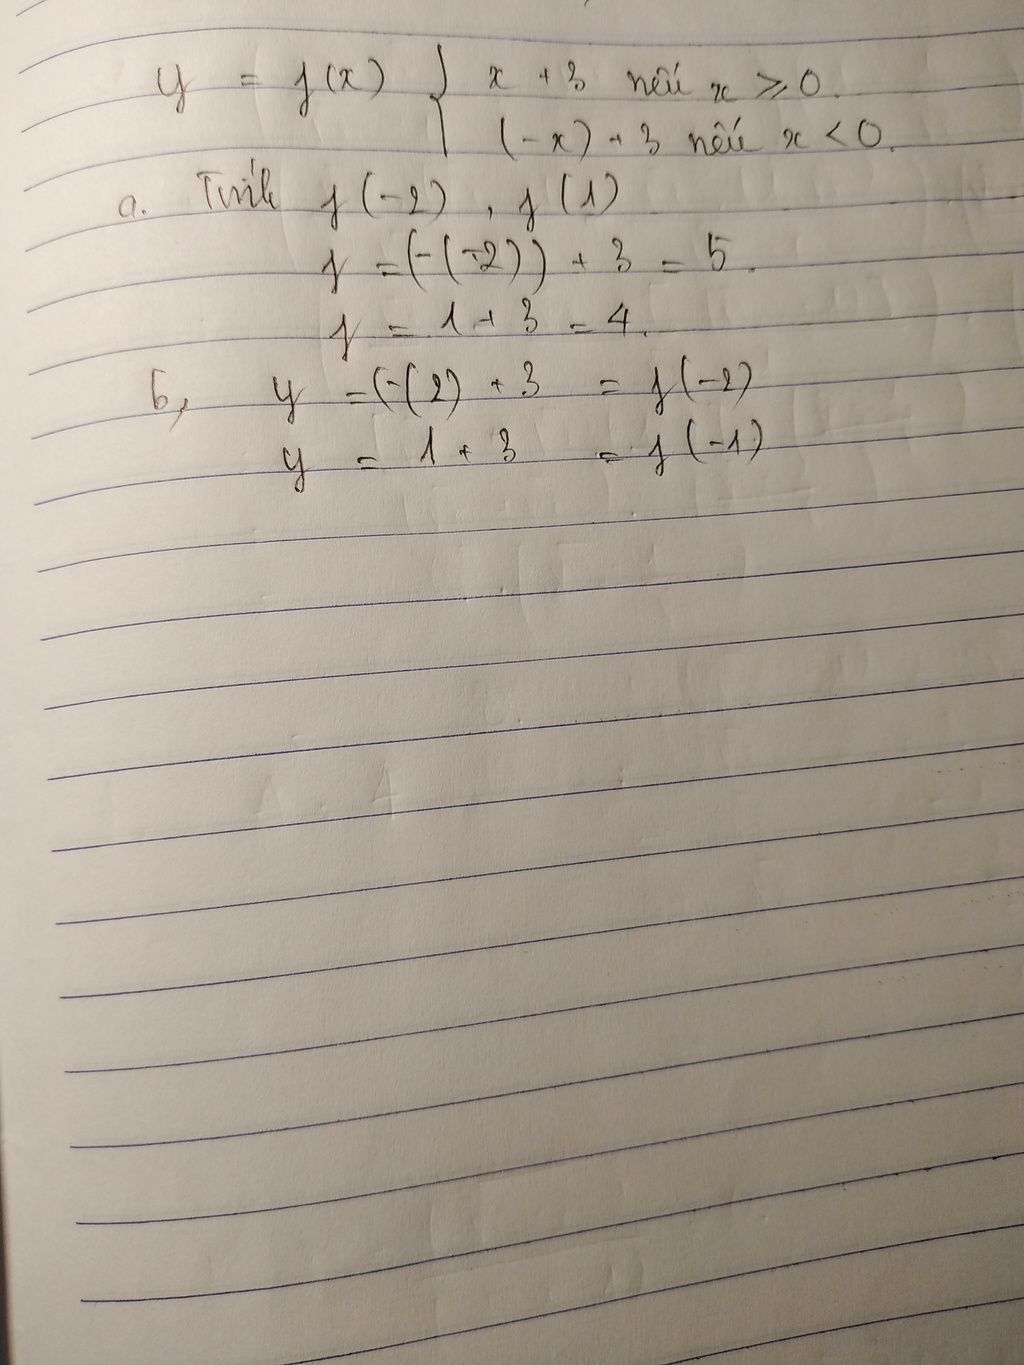 y = f(x) { x + 3 nếu x ⩾ 0.
(-x) + 3 nếu x < 0.
a. Tính f(-2), f(1)
f = (-(-2)) + 3 = 5.
f = 1 + 3 = 4.
b, y = (-(2) + 3 = f(-2)
y = 1 + 3 = f(-1)